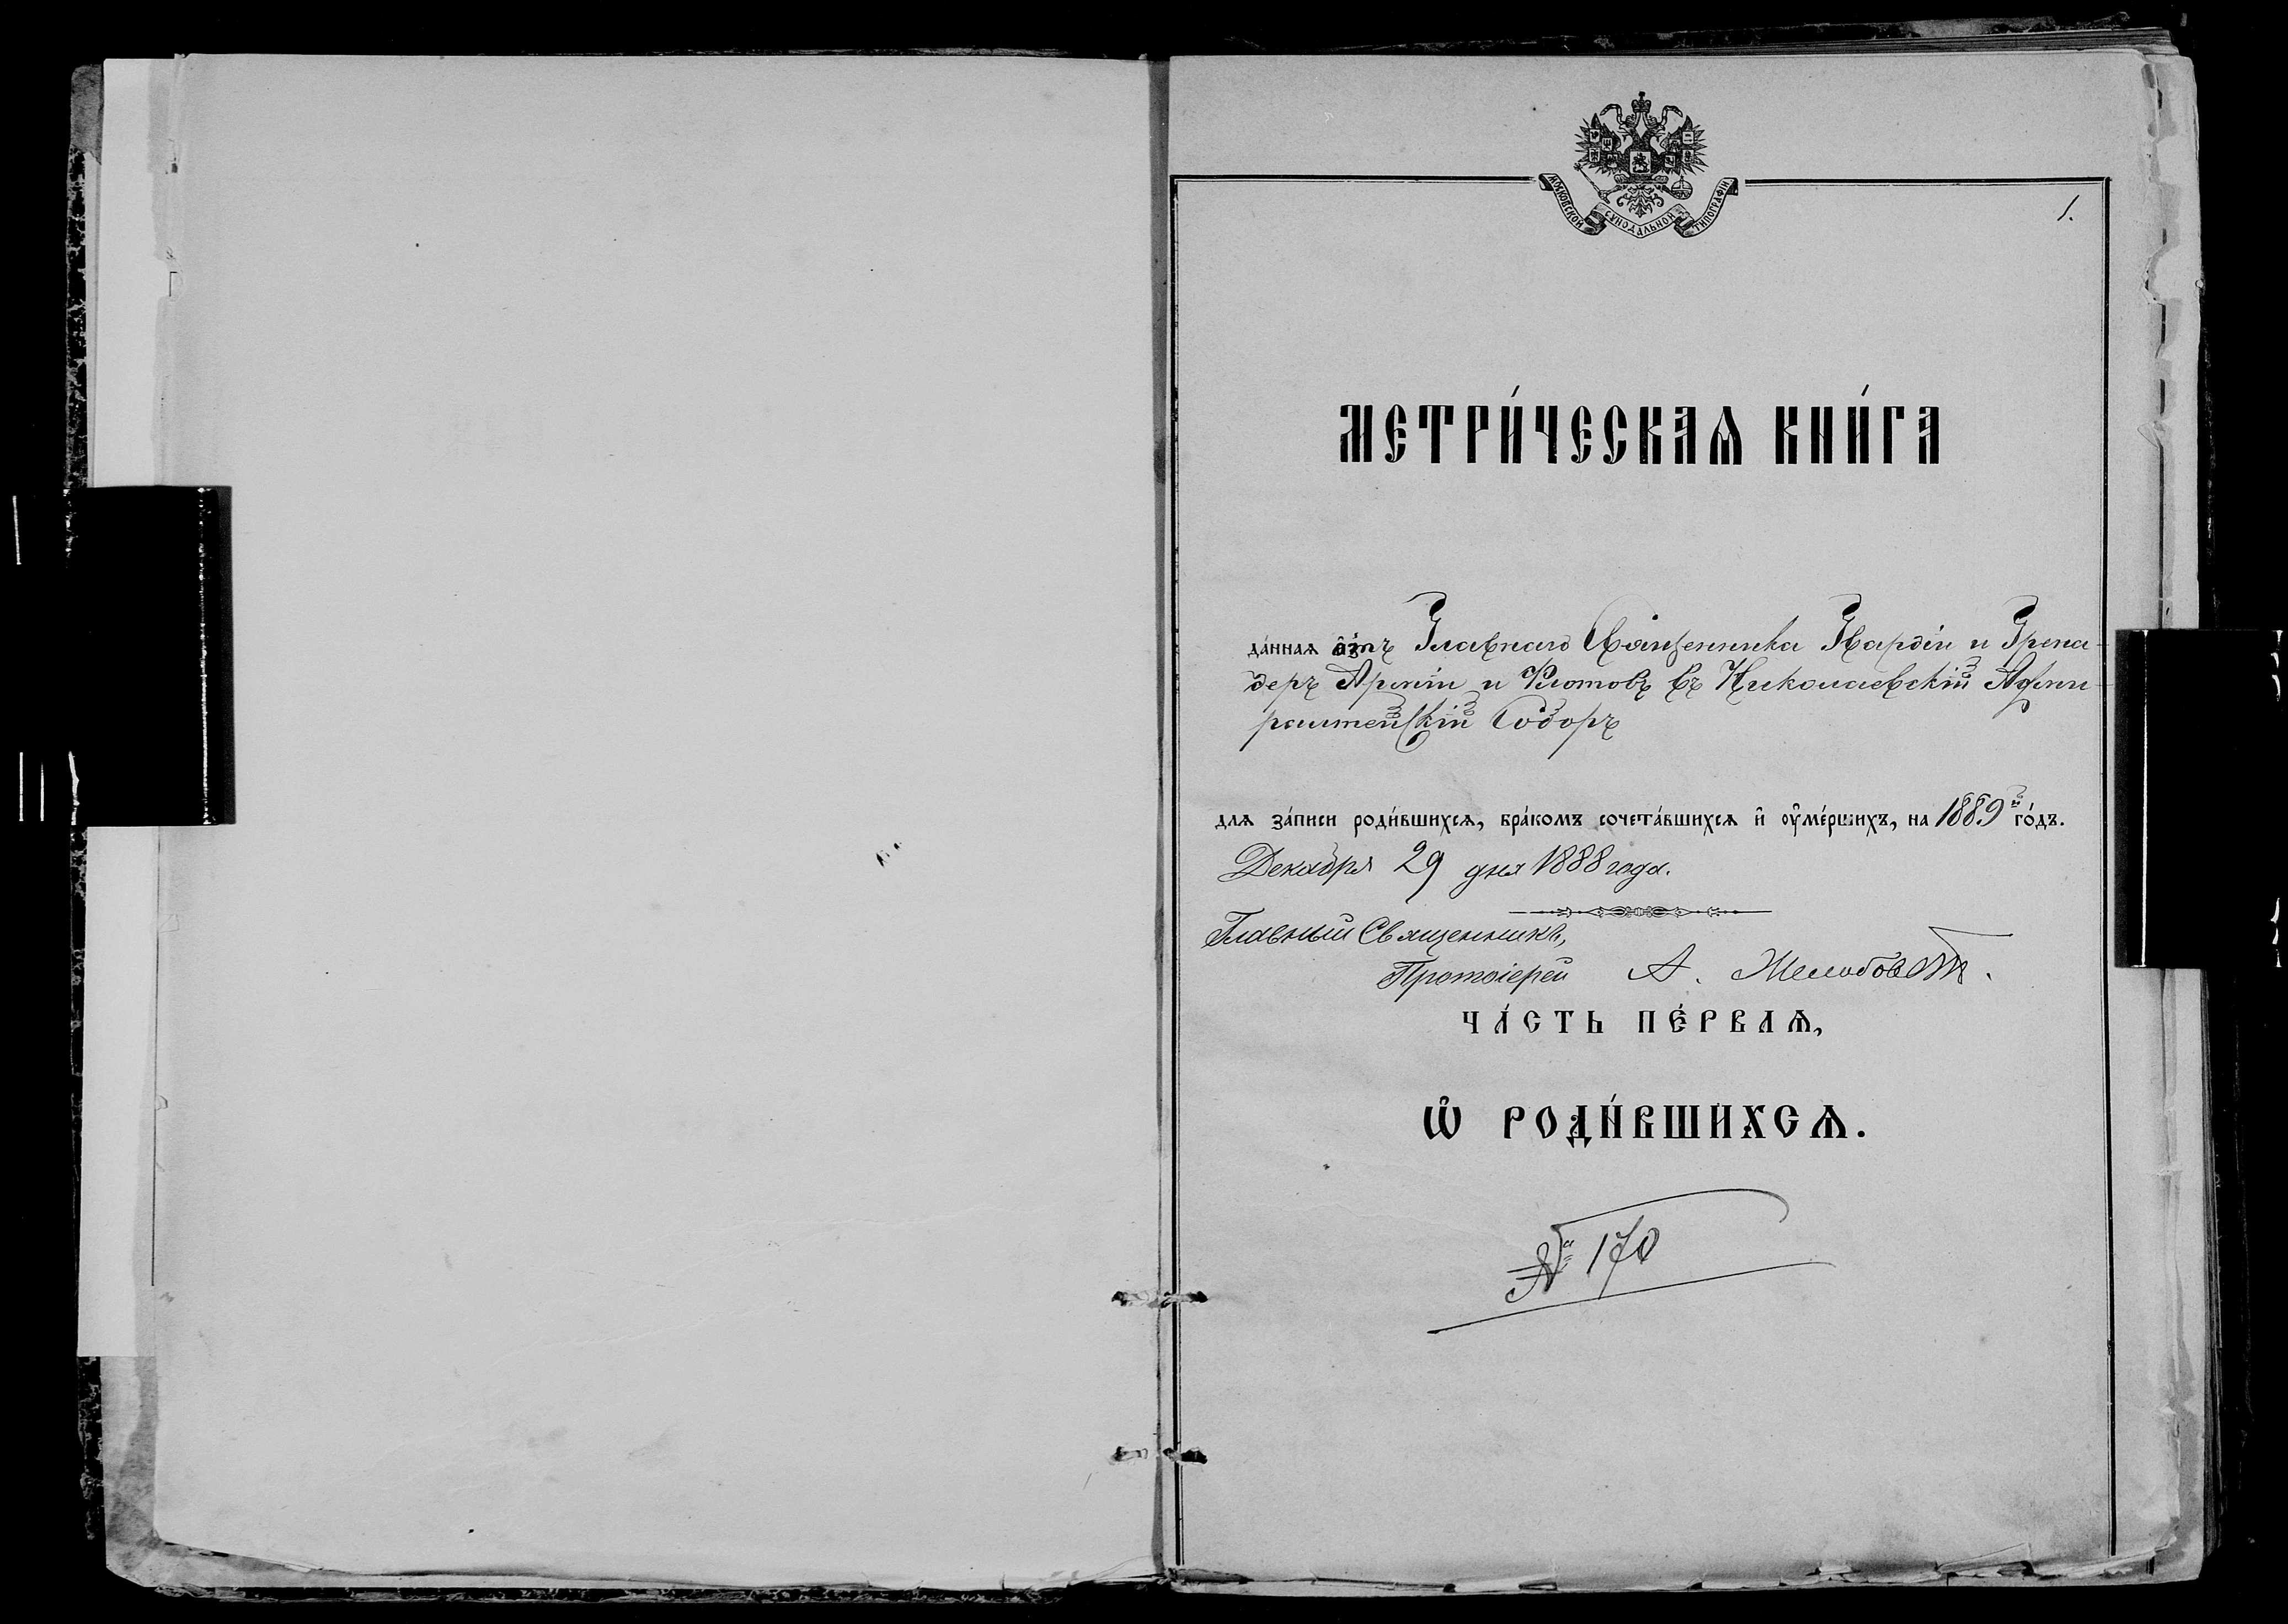 МОСКОВСКОЙ СѴНОДАЛЬНОЙ ТИПОГРАФІИ
1.
МЕТРИ́ЧЕСКАѦ КНИ́ГА
да́ннаѧ отъ Главнаго Священника Гвардіи и Грена-
деръ Арміи и Флотовъ въ Николаевскій Адми-
ралтейскій Соборъ
длѧ за́писи роди́вшихсѧ, бра́комъ сочета́вшихсѧ и҆ ᲂу҆ме́ршихъ, на 1889й го́дъ.
Декабря 29 дня 1888 года.
Главный Священникъ,
Протоіерей А. Желобовскій.
ЧА́СТЬ ПЕ́РВАѦ,
Ѽ РОДИ́ВШИХСѦ.
№ 170